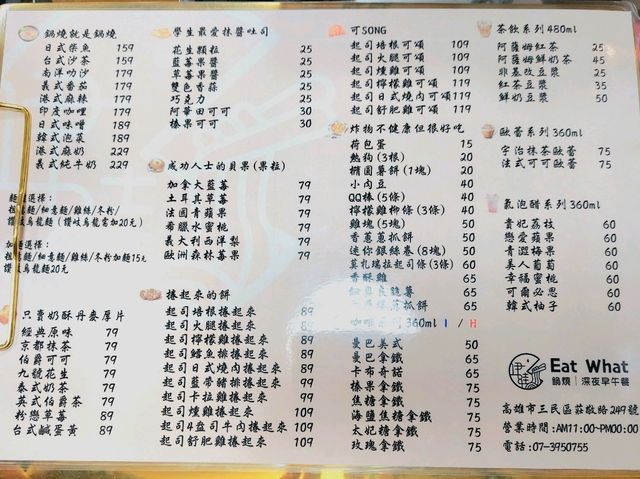 鍋燒就是鍋燒
日式柴魚 159
台式沙茶 159
南洋叻沙 179
義式番茄 179
港式麻辣 179
印度咖哩 179
日式味噌 189
韓式泡菜 189
港式麻奶 229
義式純牛奶 229
麵種選擇：
拉意麵/細意麵/雞絲/冬粉/
讚岐烏龍麵（讚岐烏龍需加20元）
加麵選擇：
拉意麵/細意麵/雞絲/冬粉加麵15元
讚岐烏龍麵20元
只賣奶酥丹麥厚片
經典原味 79
京都抹茶 79
伯爵可可 79
九號花生 79
泰式奶茶 79
英式伯爵茶 79
粉戀草莓 79
台式鹹蛋黃 79
學生最愛抹醬吐司
花生顆粒 25
藍莓果醬 25
草莓果醬 25
雙色香蒜 25
巧克力 25
阿華田可可 30
榛果可可 30
成功人士的貝果(果拉)
加拿大藍莓 79
土耳其草莓 79
法國青蘋果 79
希臘水蜜桃 79
義大利西洋梨 79
歐洲森林莓果 79
捲起來的餅
起司培根捲起來 89
起司火腿捲起來 89
起司檸檬雞捲起來 99
起司鱈魚排捲起來 99
起司日式燒肉捲起來 99
起司藍帶豬排捲起來 99
起司卡拉雞捲起來 99
起司燻雞捲起來 109
起司4盎司牛肉捲起來 109
起司舒肥雞捲起來 109
可SONG
起司培根可頌 109
起司火腿可頌 109
起司燻雞可頌 109
起司檸檬雞可頌 119
起司日式燒肉可頌 119
起司舒肥雞可頌 119
炸物不健康但很好吃
荷包蛋 15
熱狗(3根) 20
橢圓薯餅(1塊) 20
小肉豆 40
QQ棒(5條) 40
檸檬雞柳條(3條) 40
雞塊(5塊) 50
香蔥蔥抓餅 50
迷你銀絲卷(8塊) 50
莫札瑞拉起司條(3條) 60
香酥雞 65
65
抓餅 60
咖啡系列360ml
曼巴美式 50
曼巴拿鐵 65
卡布奇諾 65
榛果拿鐵 75
焦糖拿鐵 75
海鹽焦糖拿鐵 75
太妃糖拿鐵 75
玫瑰拿鐵 75
茶飲系列480ml
阿薩姆紅茶 25
阿薩姆鮮奶茶 45
非基改豆漿 25
紅茶豆漿 35
鮮奶豆漿 50
歐蕾系列360ml
宇治抹茶歐蕾 65
法式可可歐蕾 65
氣泡醋系列360ml
貴妃荔枝 60
戀愛蘋果 60
青澀梅果 60
美人葡萄 60
幸福蜜桃 60
可爾必思 60
韓式柚子 60
Eat What
鍋燒｜深夜早午餐
高雄市三民區莊敬路249號
營業時間：AM11:00~PM00:00
電話：07-3950755